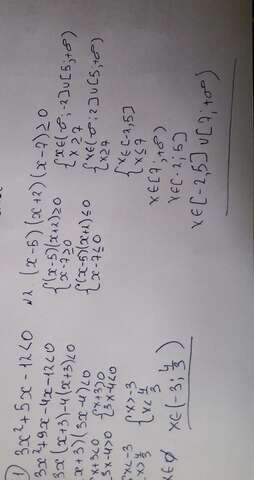 1) 3x²+5x-12<0
3x²+9x-4x-12<0
3x(x+3)-4(x+3)<0
(x+3)(3x-4)<0
{x+3<0 {x+3>0
3x-4>0 3x-4<0
{x<-3 {x>-3
x>4/3 x<4/3
x∈∅ x∈(-3; 4/3)
№2 (x-5)(x+2)(x-7)≥0
{(x-5)(x+2)≥0
x-7≥0
{(x-5)(x+2)≤0
x-7≤0
{x∈(-∞;-2]∪[5;+∞)
x≥7
{x∈(-∞;-2]∪[5;+∞)
x≥7
{x∈[-2,5]
x≤7
x∈[7;+∞)
x∈[-2;5]
x∈[-2,5]∪[7;+∞)